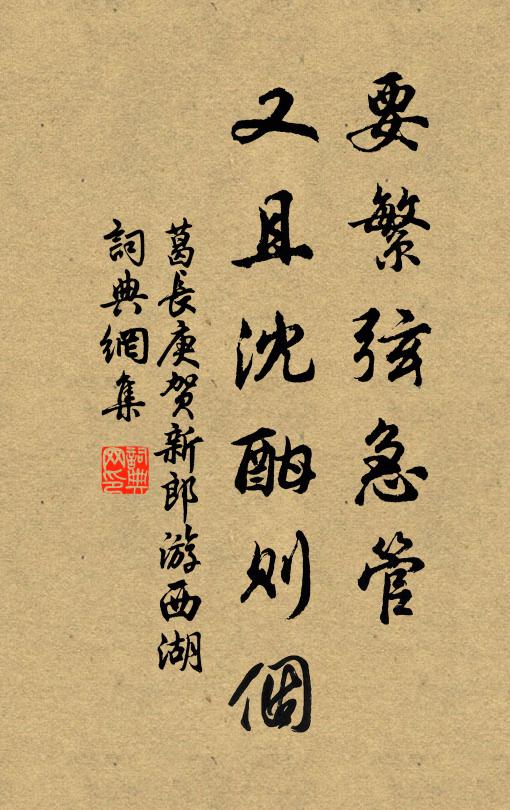 要繁弦急管
又且沈酣则個
葛長庚贺新郎游西湖
詞典網集
詞典
网印